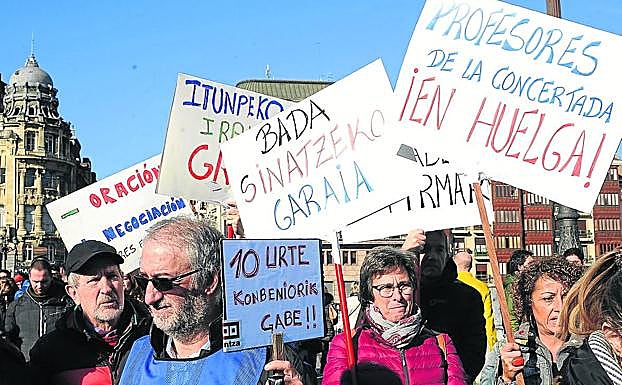 PROFESORES
DE LA CONCERTADA
¡EN HUELGA!
ITUNPEKO
IRA
GAR
BADA
SINATZEKO
GARAIA
ORACIÓN
NEGOCIACIÓN
10 URTE
KONBENIORIK
GABE!!
ntza